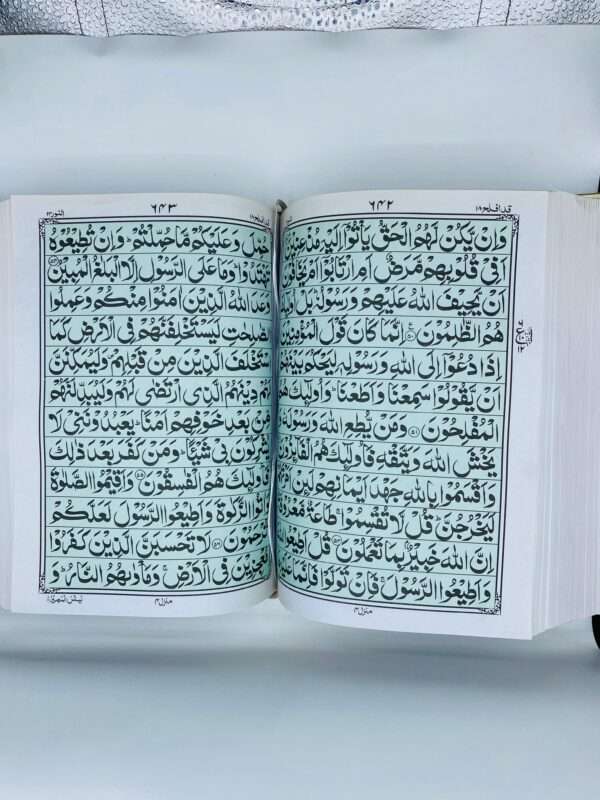 قد افلح ۱۸
۶۴۲
وَاِنْ يَّكُنْ لَّهُمُ الْحَقُّ يَاْتُوْۤا اِلَيْهِ
اَفِیْ قُلُوْبِهِمْ مَّرَضٌ اَمِ ارْتَابُوْۤا اَمْ
اَنْ يَّحِيْفَ اللّٰهُ عَلَيْهِمْ وَرَسُوْلُهٗ ؕ بَلْ
هُمُ الظّٰلِمُوْنَ ﴿۵۰﴾ اِنَّمَا كَانَ قَوْلَ الْمُؤْمِنِيْنَ
اِذَا دُعُوْۤا اِلَی اللّٰهِ وَرَسُوْلِهٖ لِيَحْكُمَ بَيْنَهُمْ
اَنْ يَّقُوْلُوْا سَمِعْنَا وَاَطَعْنَا ؕ وَاُولٰٓئِكَ هُمُ
الْمُفْلِحُوْنَ ﴿۵۱﴾ وَمَنْ يُّطِعِ اللّٰهَ وَرَسُوْلَهٗ
يَخْشَ اللّٰهَ وَيَتَّقْهِ فَاُولٰٓئِكَ هُمُ الْفَآئِزُوْنَ
وَاَقْسَمُوْا بِاللّٰهِ جَهْدَ اَيْمَانِهِمْ لَئِنْ
لَيَخْرُجُنَّ ؕ قُلْ لَّا تُقْسِمُوْا ۚ طَاعَةٌ
اِنَّ اللّٰهَ خَبِيْرٌۢ بِمَا تَعْمَلُوْنَ ﴿۵۳﴾ قُلْ اَطِيْعُوا
وَاَطِيْعُوا الرَّسُوْلَ ۚ فَاِنْ تَوَلَّوْا فَاِنَّمَا
منزل ۴
قد افلح ۱۸
۶۴۳
النور ۲۴
حُمِّلَ وَعَلَيْكُمْ مَّا حُمِّلْتُمْ ؕ وَاِنْ تُطِيْعُوْهُ
تَهْتَدُوْا ؕ وَمَا عَلَی الرَّسُوْلِ اِلَّا الْبَلٰغُ الْمُبِيْنُ ﴿۵۴﴾
وَعَدَ اللّٰهُ الَّذِيْنَ اٰمَنُوْا مِنْكُمْ وَعَمِلُوا
الصّٰلِحٰتِ لَيَسْتَخْلِفَنَّهُمْ فِی الْاَرْضِ كَمَا
اسْتَخْلَفَ الَّذِيْنَ مِنْ قَبْلِهِمْ ۪ وَلَيُمَكِّنَنَّ
لَهُمْ دِيْنَهُمُ الَّذِی ارْتَضٰی لَهُمْ وَلَيُبَدِّلَنَّهُمْ
مِّنْۢ بَعْدِ خَوْفِهِمْ اَمْنًا ؕ يَعْبُدُوْنَنِیْ لَا
يُشْرِكُوْنَ بِیْ شَيْـًٔا ؕ وَمَنْ كَفَرَ بَعْدَ ذٰلِكَ
فَاُولٰٓئِكَ هُمُ الْفٰسِقُوْنَ ﴿۵۵﴾ وَاَقِيْمُوا الصَّلٰوةَ
وَاٰتُوا الزَّكٰوةَ وَاَطِيْعُوا الرَّسُوْلَ لَعَلَّكُمْ
تُرْحَمُوْنَ ﴿۵۶﴾ لَا تَحْسَبَنَّ الَّذِيْنَ كَفَرُوْا
مُعْجِزِيْنَ فِی الْاَرْضِ ۚ وَمَاْوٰىهُمُ النَّارُ ؕ وَ
منزل ۴
لَبِئْسَ الْمَصِيْرُ